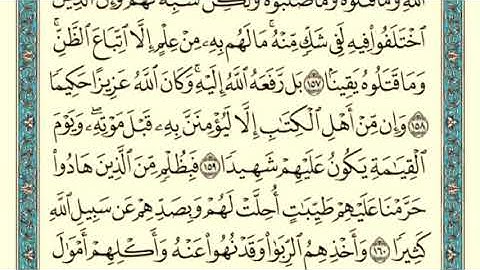 اللَّهِ وَمَا قَتَلُوهُ وَمَا صَلَبُوهُ وَلَٰكِن شُبِّهَ لَهُمْ ۚ وَإِنَّ الَّذِينَ
اخْتَلَفُوا فِيهِ لَفِي شَكٍّ مِّنْهُ ۚ مَا لَهُم بِهِ مِنْ عِلْمٍ إِلَّا اتِّبَاعَ الظَّنِّ ۚ
وَمَا قَتَلُوهُ يَقِينًا ١٥٧ بَل رَّفَعَهُ اللَّهُ إِلَيْهِ ۚ وَكَانَ اللَّهُ عَزِيزًا حَكِيمًا
١٥٨ وَإِن مِّنْ أَهْلِ الْكِتَابِ إِلَّا لَيُؤْمِنَنَّ بِهِ قَبْلَ مَوْتِهِ ۖ وَيَوْمَ
الْقِيَامَةِ يَكُونُ عَلَيْهِمْ شَهِيدًا ١٥٩ فَبِظُلْمٍ مِّنَ الَّذِينَ هَادُوا
حَرَّمْنَا عَلَيْهِمْ طَيِّبَاتٍ أُحِلَّتْ لَهُمْ وَبِصَدِّهِمْ عَن سَبِيلِ اللَّهِ
كَثِيرًا ١٦٠ وَأَخْذِهِمُ الرِّبَوٰا وَقَدْ نُهُوا عَنْهُ وَأَكْلِهِمْ أَمْوَالَ